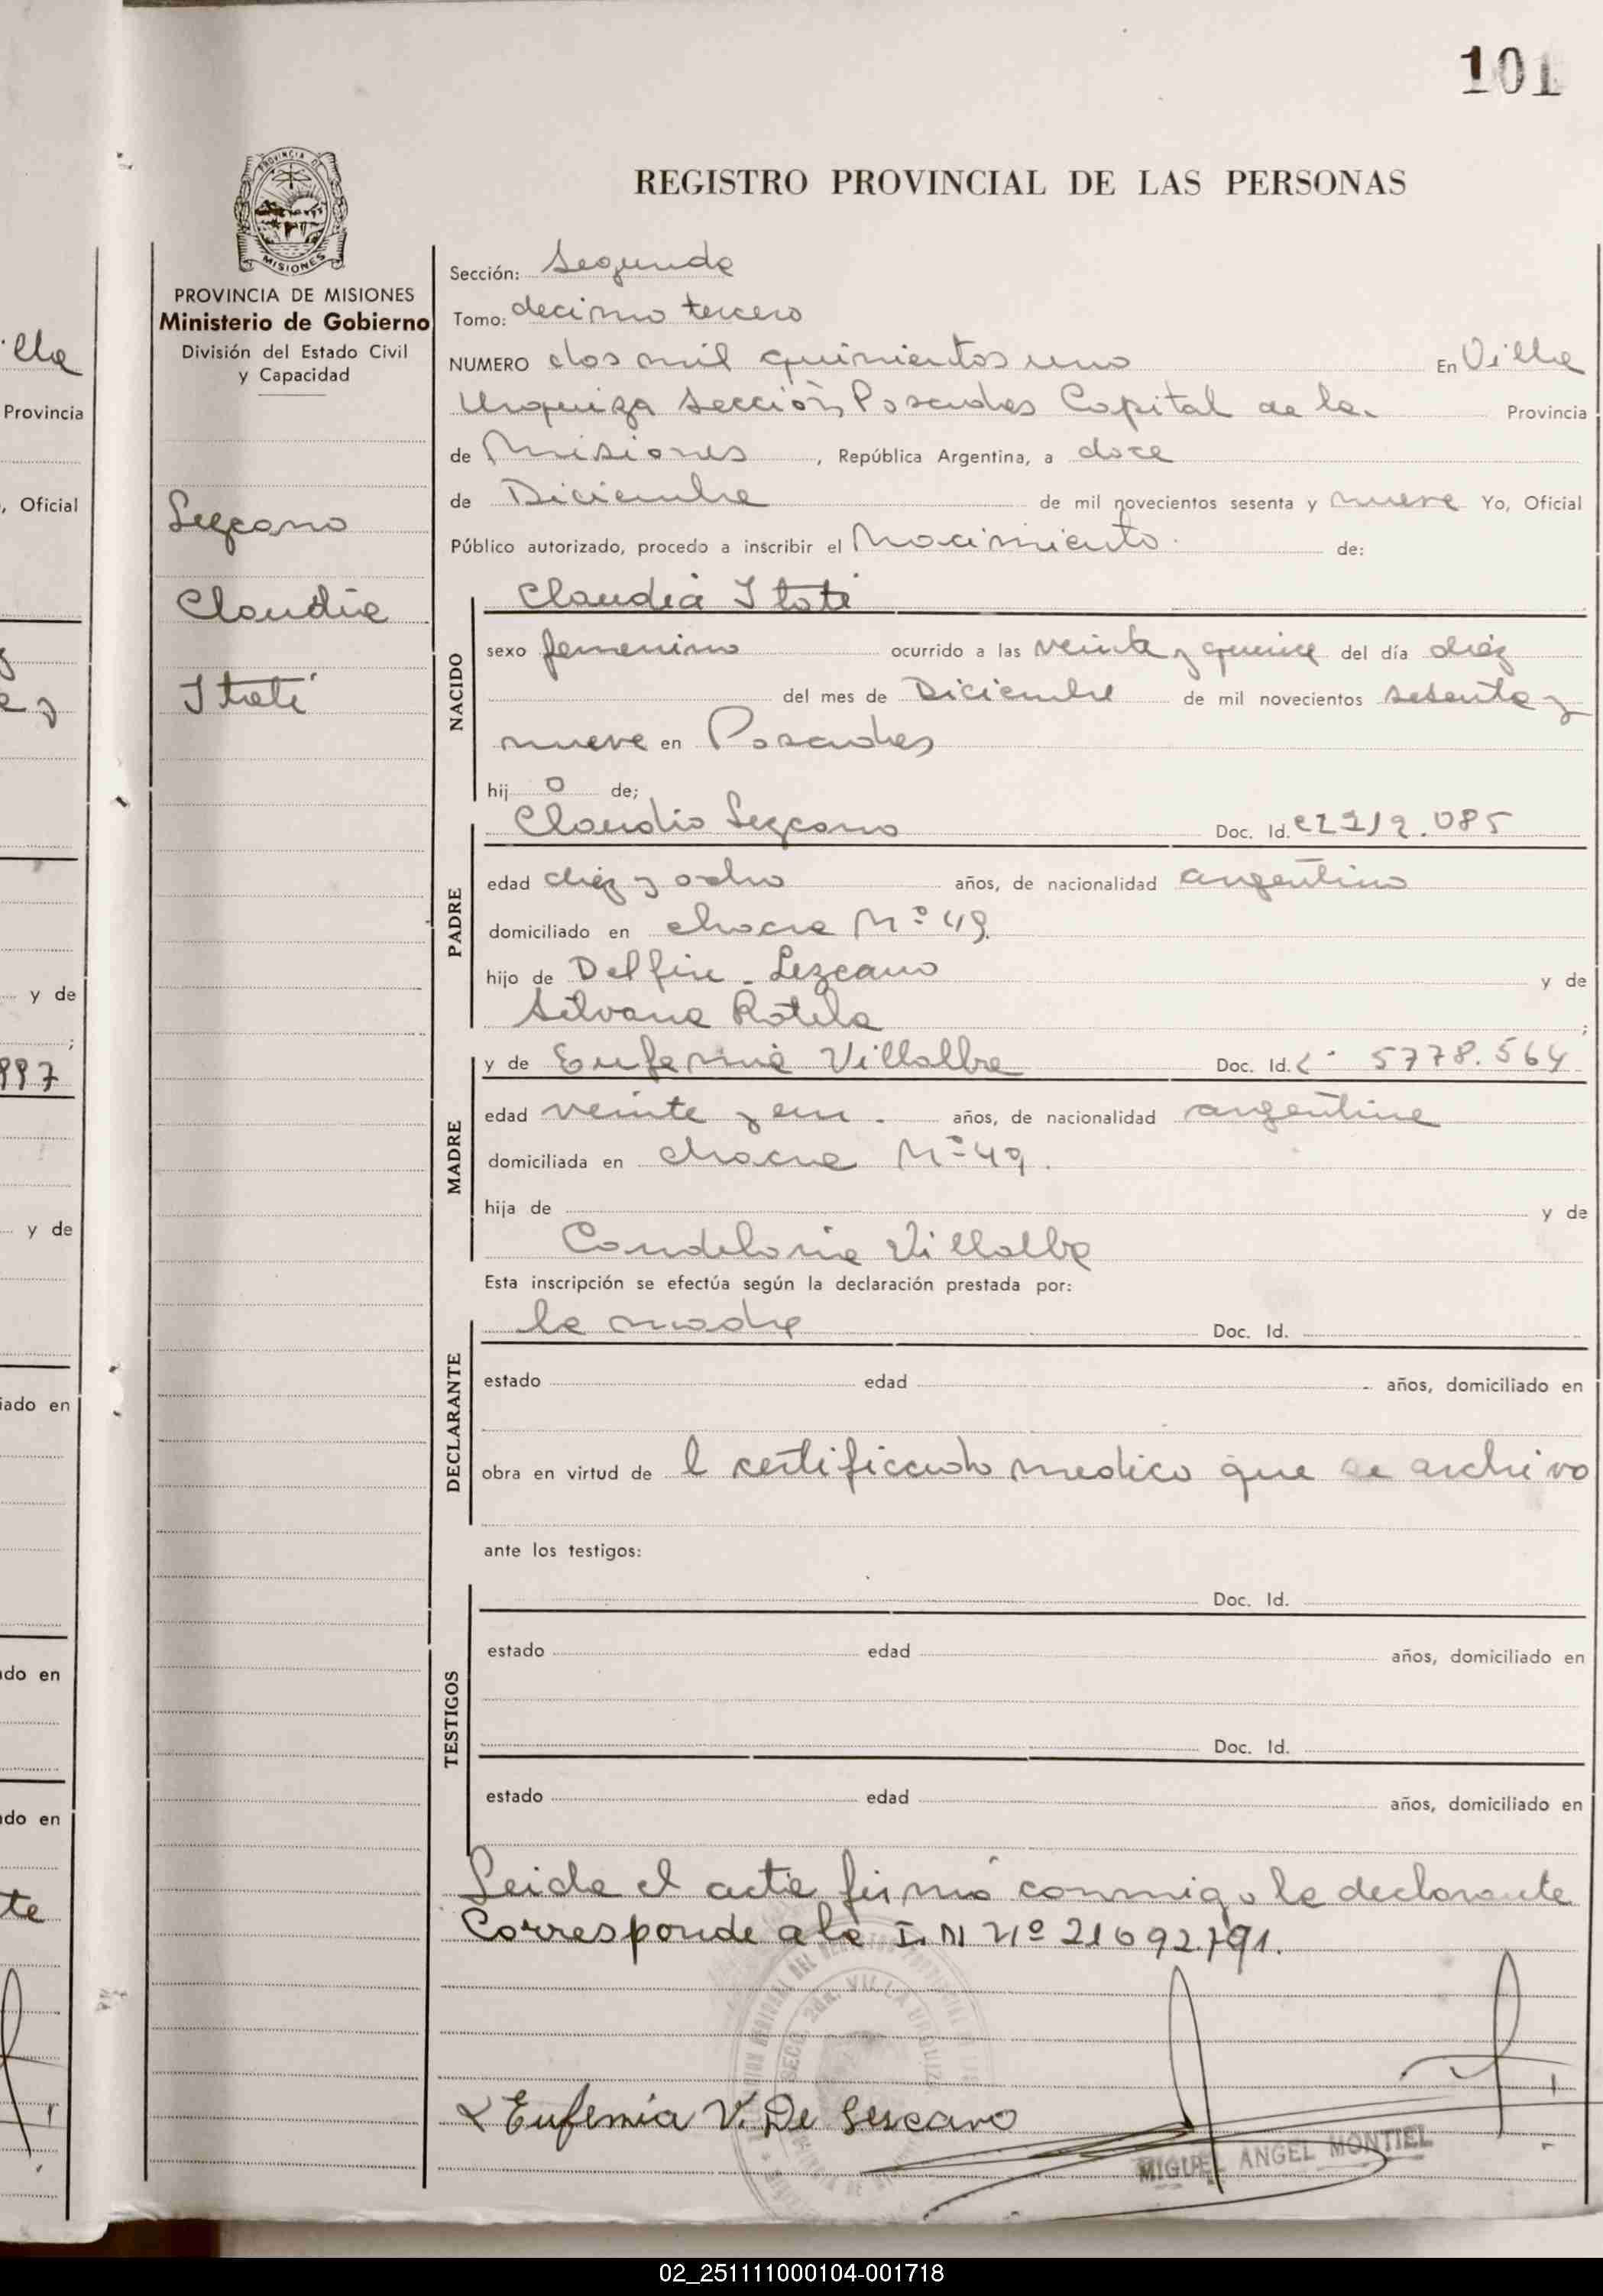 101
REGISTRO PROVINCIAL DE LAS PERSONAS
PROVINCIA DE MISIONES
Ministerio de Gobierno
División del Estado Civil
y Capacidad
Lezcano
Claudia
Itati
Sección: Segunda
Tomo: decimo tercero
NUMERO dos mil quinientos uno En Villa
Urquiza Sección Posadas Capital de la Provincia
de Misiones, República Argentina, a doce
de Diciembre de mil novecientos sesenta y nueve Yo, Oficial
Público autorizado, procedo a inscribir el Nacimiento de:
NACIDO
Claudia Itati
sexo femenino ocurrido a las veinte y quince del día diez
del mes de Diciembre de mil novecientos sesenta y
nueve en Posadas
hij o de;
PADRE
Claudio Lezcano Doc. Id.
edad diez y ocho años, de nacionalidad argentino
domiciliado en chacra Nº 49.
hijo de Delfin Lezcano y de
Silvana Rotela ;
MADRE
y de Eufemia Villalba Doc. Id. 5778.564
edad veinte y un años, de nacionalidad argentina
domiciliada en chacra Nº 49.
hija de y de
Candelaria Villalba
Esta inscripción se efectúa según la declaración prestada por:
DECLARANTE
la madre Doc. Id.
estado edad años, domiciliado en
obra en virtud de l certificado medico que se archivo
ante los testigos:
TESTIGOS
Doc. Id.
estado edad años, domiciliado en
Doc. Id.
estado edad años, domiciliado en
Leida el acta firmó conmigo la declarante
Corresponde a la I.N Nº 21692.791.
Eufemia V. De Lescano
MIGUEL ANGEL MONTIEL
02_251111000104-001718